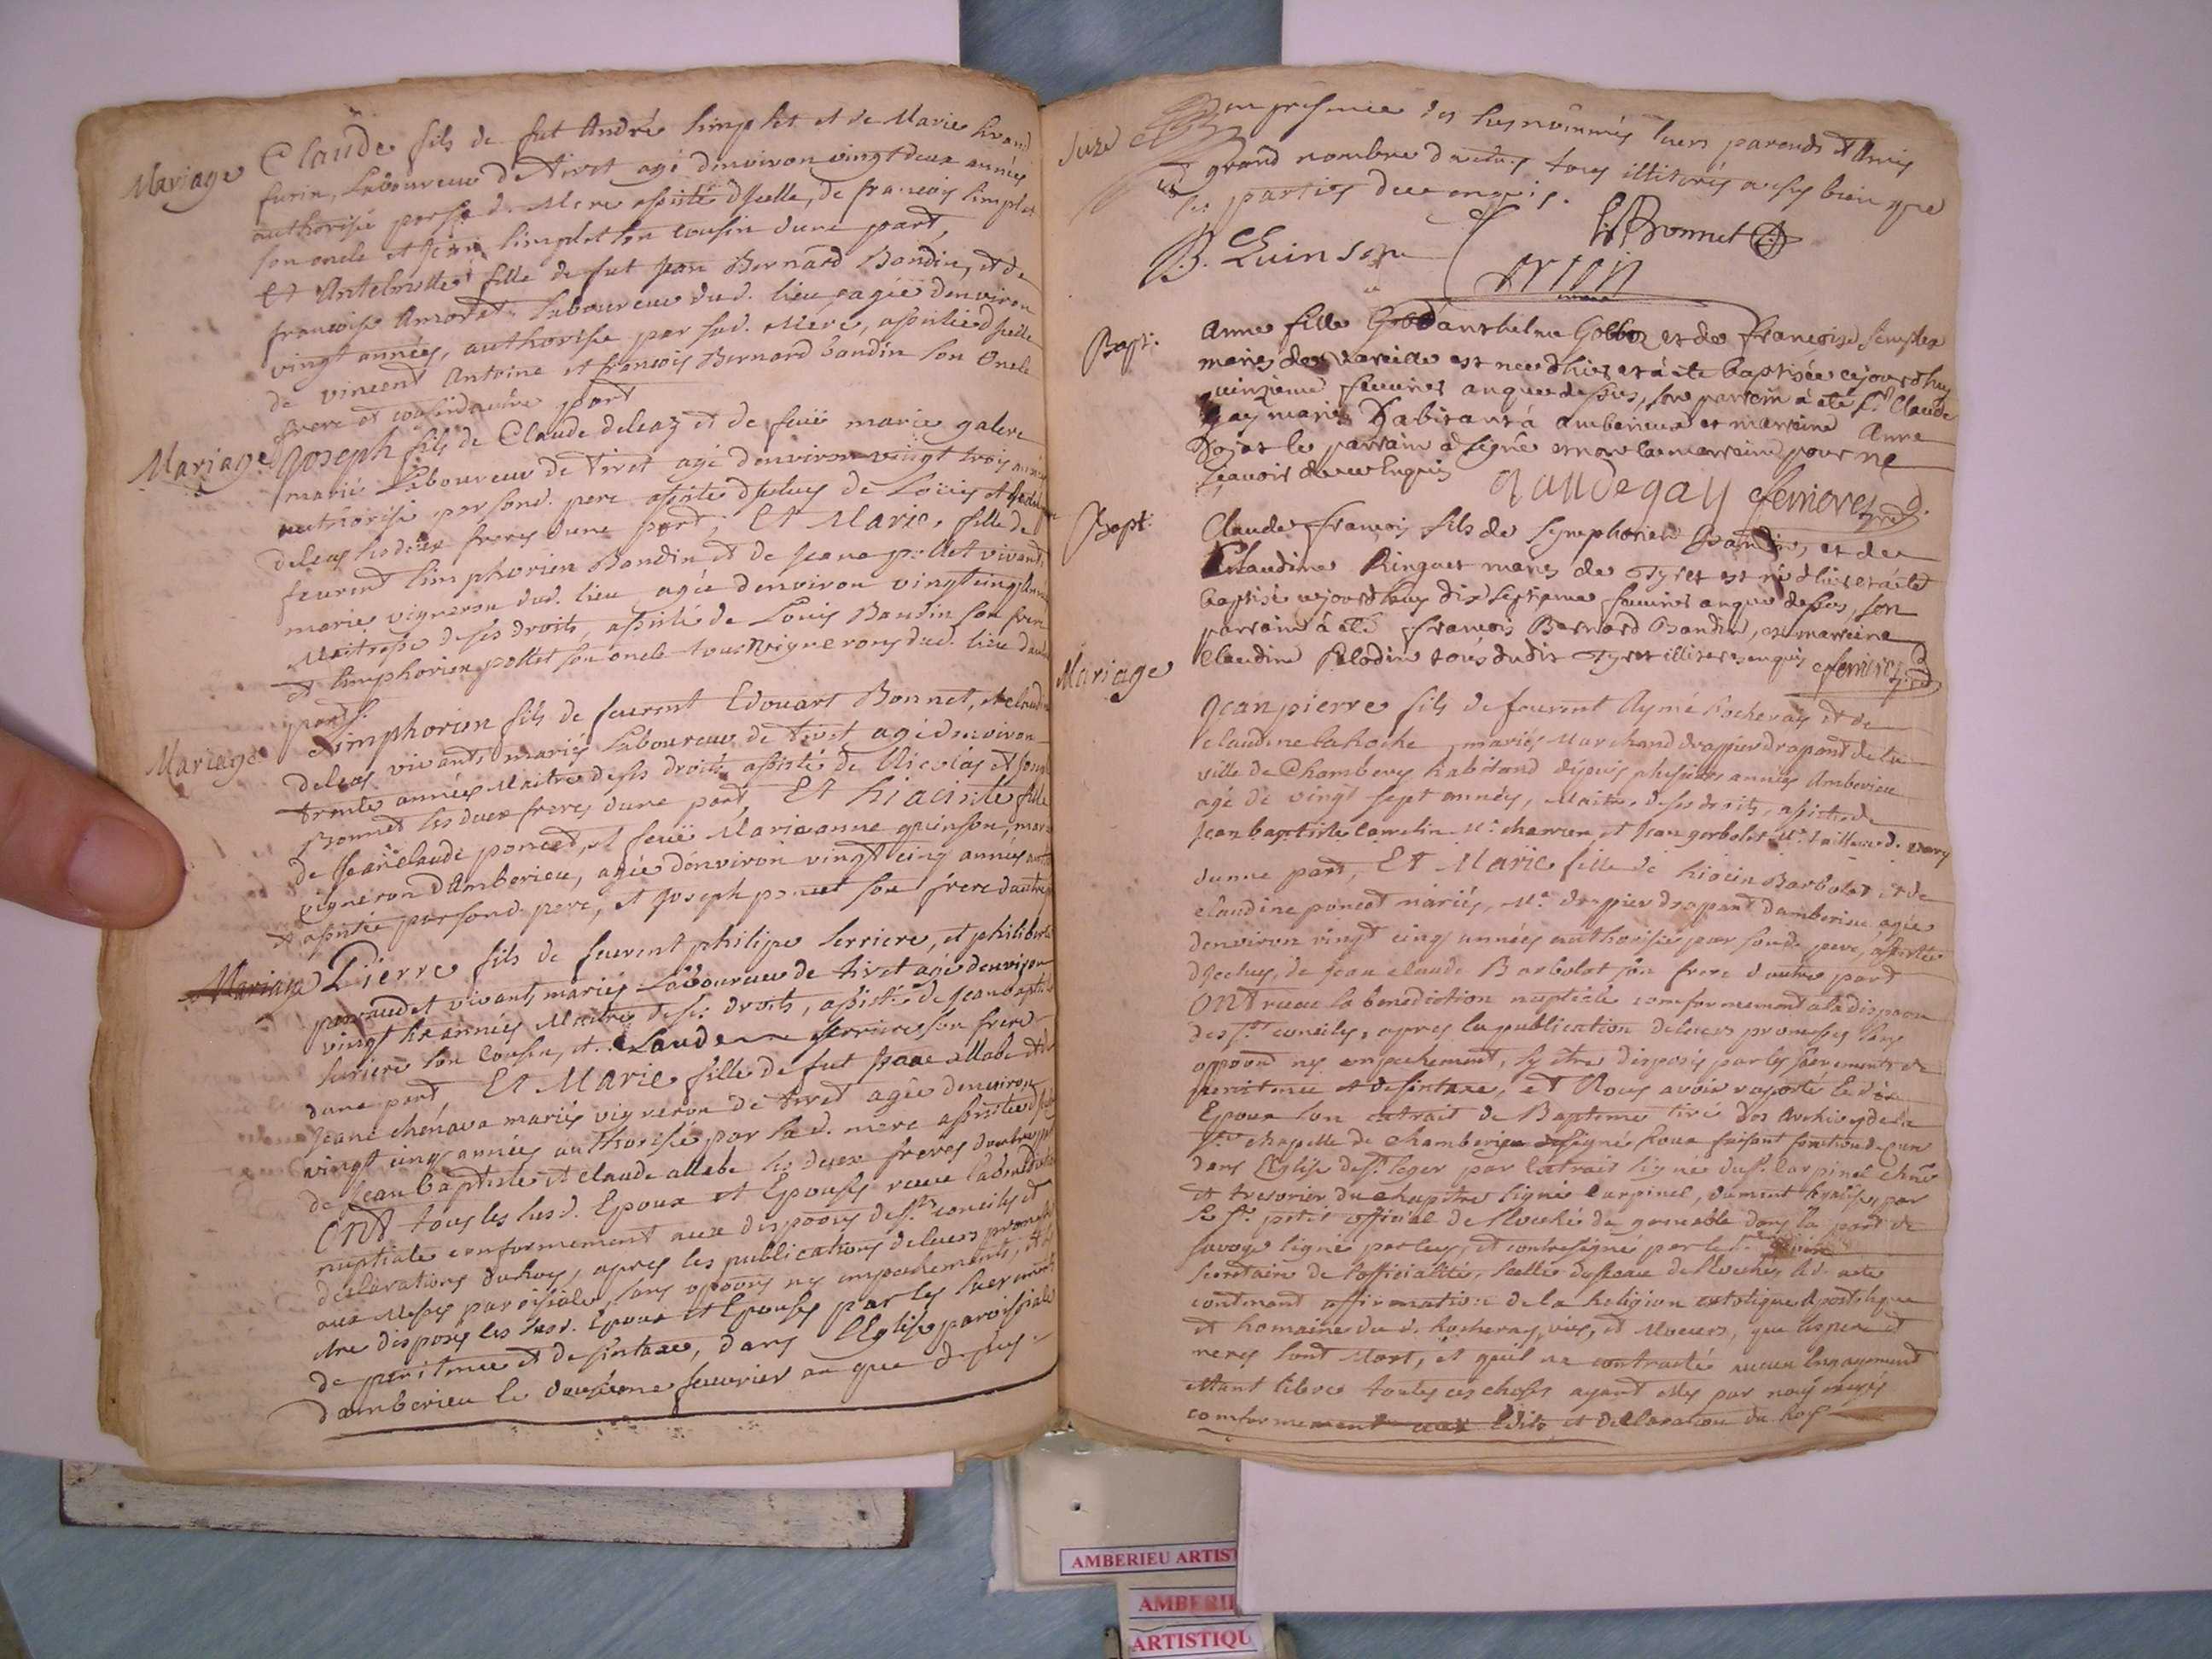 Mariage Claude fils de fut André Simplet et de Marie
laboureur de Tiret agé denviron vingt deux années
authorisé par sad. Mere assisté dycelle, de francois Simplet
son oncle et Jean Simplet son cousin dune part,
Et Antelmette fille de fut Jean Bernard Bondin, et de
francoise Amoret laboureur dud. lieu agée denviron
vingt années, authorisée par sad. Mere, assistée dycelle
de vincent Antoine et francois Bernard bandin son Oncle
frere et cousin dautre part
Mariage Joseph fils de Claude deleaz et de feüe marie galere
mariés Laboureur de Tiret agé denviron vingt trois années
authorisé par sond. pere assisté dyceluy de Loüis et
deleas ses deux freres dune part, Et Marie, fille de
feurent Simphorien Bandin et de Jeane pollet vivants
mariés vigneron dud. lieu agée denviron vingt cinq années
Maitresse de ses droits, assistée de Loüis Bandin son frere
et Simphorien pollet son oncle tous vignerons dud. lieu dautre
part.
Mariage Simphorien fils de feurent Edouart Bonnet, et claudine
deleas vivants mariés Laboureur de Tiret agé denviron
trente années Maitre de ses droits assisté de Nicolas et
Bonnet ses deux freres dune part, Et hiacinte fille
de Jean claude poncet, et feüe Marieanne quinson, mariés
vigneron dAmberieu, agée denviron vingt cinq années
et assistée par sond. pere, et Joseph poncet son frere dautre part
Mariage Pierre fils de feurent philipe Serriere, et philiberte
vivants mariés Laboureur de tiret agé denviron
vingt six années Maitre de ses droits, assisté de Jean baptiste
Serriere son cousin, et Claude Serriere son frere
dune part, Et Marie fille de fut allabe et de
Jeane chénava mariés vigneron de tiret agée denviron
vingt cinq années authorisée par sad. mere assistée dycelle
de Jean baptiste et claude allabe ses deux freres dautre part
ONT tous les susd. Epoux et Epouses receu la benediction
nuptiale conformement aux dispoons des Sts. conciles et
declarations du Roy, apres les publications de leurs promesses
aux Messes paroissiales, sans opoons ny empechements, et
etre disposés les susd. Epoux et Epouses par les sacrements
de penitence et de sintaxe, dans lEglise paroissiale
damberieu le douzieme feuvrier an que dessus
en presence des susnommés leurs parents et Amis
et grand nombre dautres tous illiterés avises bien que
les parties de ce enquis.
B. Quinson
Bonnet
Bapt. Anne fille danthelme Gobboz et de francoise Semplex
mariés de vareille est nee dhier et à éte baptisée cejourdhuy
quinzieme feuvrier an que dessus, son parrain à eté Sr. Claude
Gay marié habitant à Amberieux et marreine Anne
le parrain à signé et non la marraine pour ne
sçavoir de ce enquis Claude gay
Bapt. Claude francois fils de Symphorien Bandin, et de
Claudine Ringuet mariés de Tyret est né dhier et à éte
baptisé cejourdhuy dix septieme feuvrier an que dessus, son
parrain à eté francois Bernard Bandin, et marreine
Claudine Pelodin tous dudit Tyret illiteres enquis
Mariage Jean pierre fils de feurent Aymé Rocheray et de
claudine la Roche, mariés Marchand drappier drapant de la
ville de Chambery habitand depuis plusieurs années Amberieu
agé de vingt sept années, Maitre de ses droits, assisté de
Jean baptiste camelin Mr. charron et Jean gorbolet Mr. Tailleur d.
dunne part, Et Marie fille de hiacin Barbolat et de
claudine poncet mariés, Mr. drappier drapant damberieu agée
denviron vingt cinq années authorisée par sond. pere, assistée
dyceluy, de Jean claude Barbolat son frere dautre part
ONT receu la benediction nuptiale conformement à la dispoon
des Sts. conciles, apres la publication de leurs promesses sans
oppoon ny empechement, sy etre disposés par les sacrements de
penitence et de sintaxe, et Nous avoir raporté
Epoux son extrait de Bapteme tiré des Archives de la
Ste chapelle de Chambery signé Roux faisant fonction de curé
dans lEglise de St. leger par extrait signé du Sr. Carpinel
et tresorier du chapitre signé Carpinel, dument legalisé par
le Sr. petit official de lEveché de grenoble dans la part de
savoye signé par luy, et contresigné par le Sr.
secretaire de lofficialité, scellé du sceau de lEveché, led. acte
contenant affirmation de la Religion catolique Apostolique
et Romaine du d. Rocheray, vies, et Moeurs, que ses pere et
meres sont Mort, et quil na contracté aucun Engagement
etant libre toutes ces choses ayant etés par nous
conformement aux Edits et declaration du Roy
AMBERIEU ARTIST
AMBERIE
ARTISTIQU